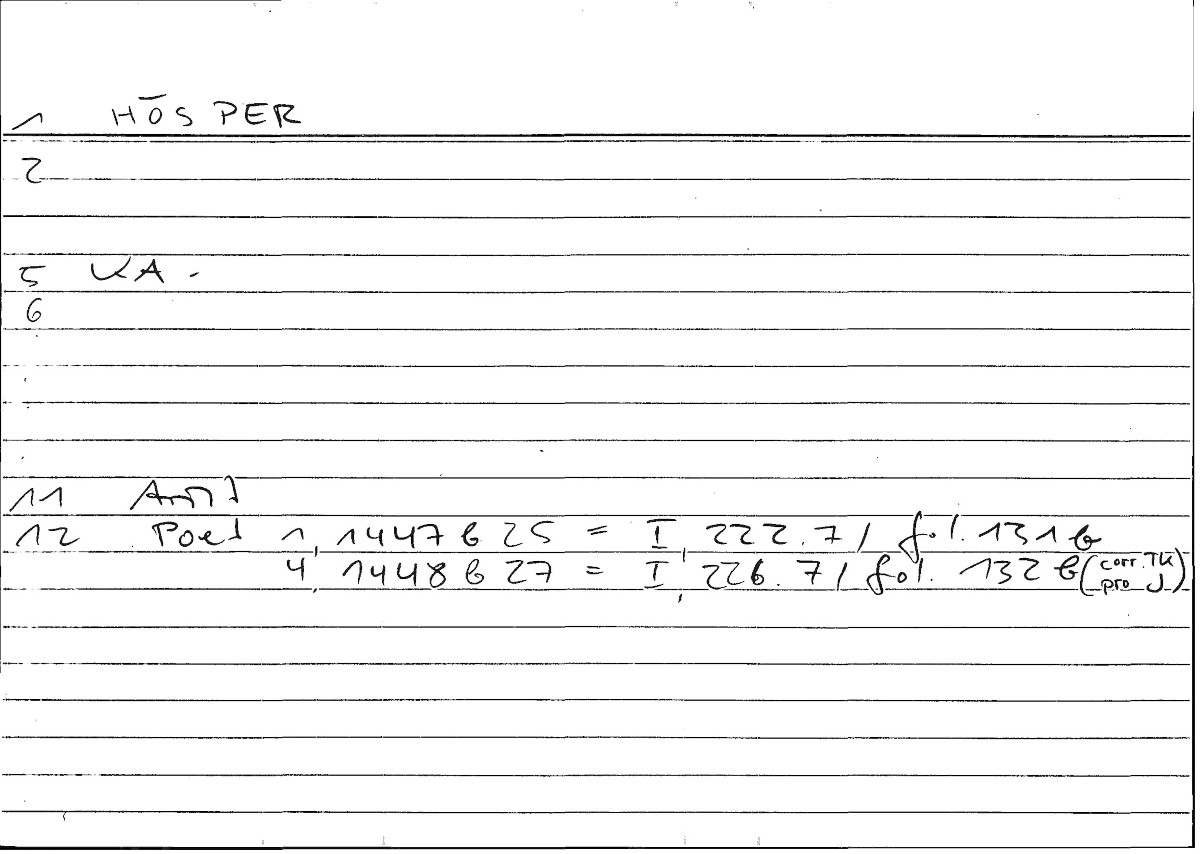 1 HŌSPER
2
5 KA -
6
11
12 Poet 1, 1447 b 25 = I, 222.7 / fol. 131 b
4, 1448 b 27 = I, 226.7 / fol. 132 b (corr. TK
pro J)